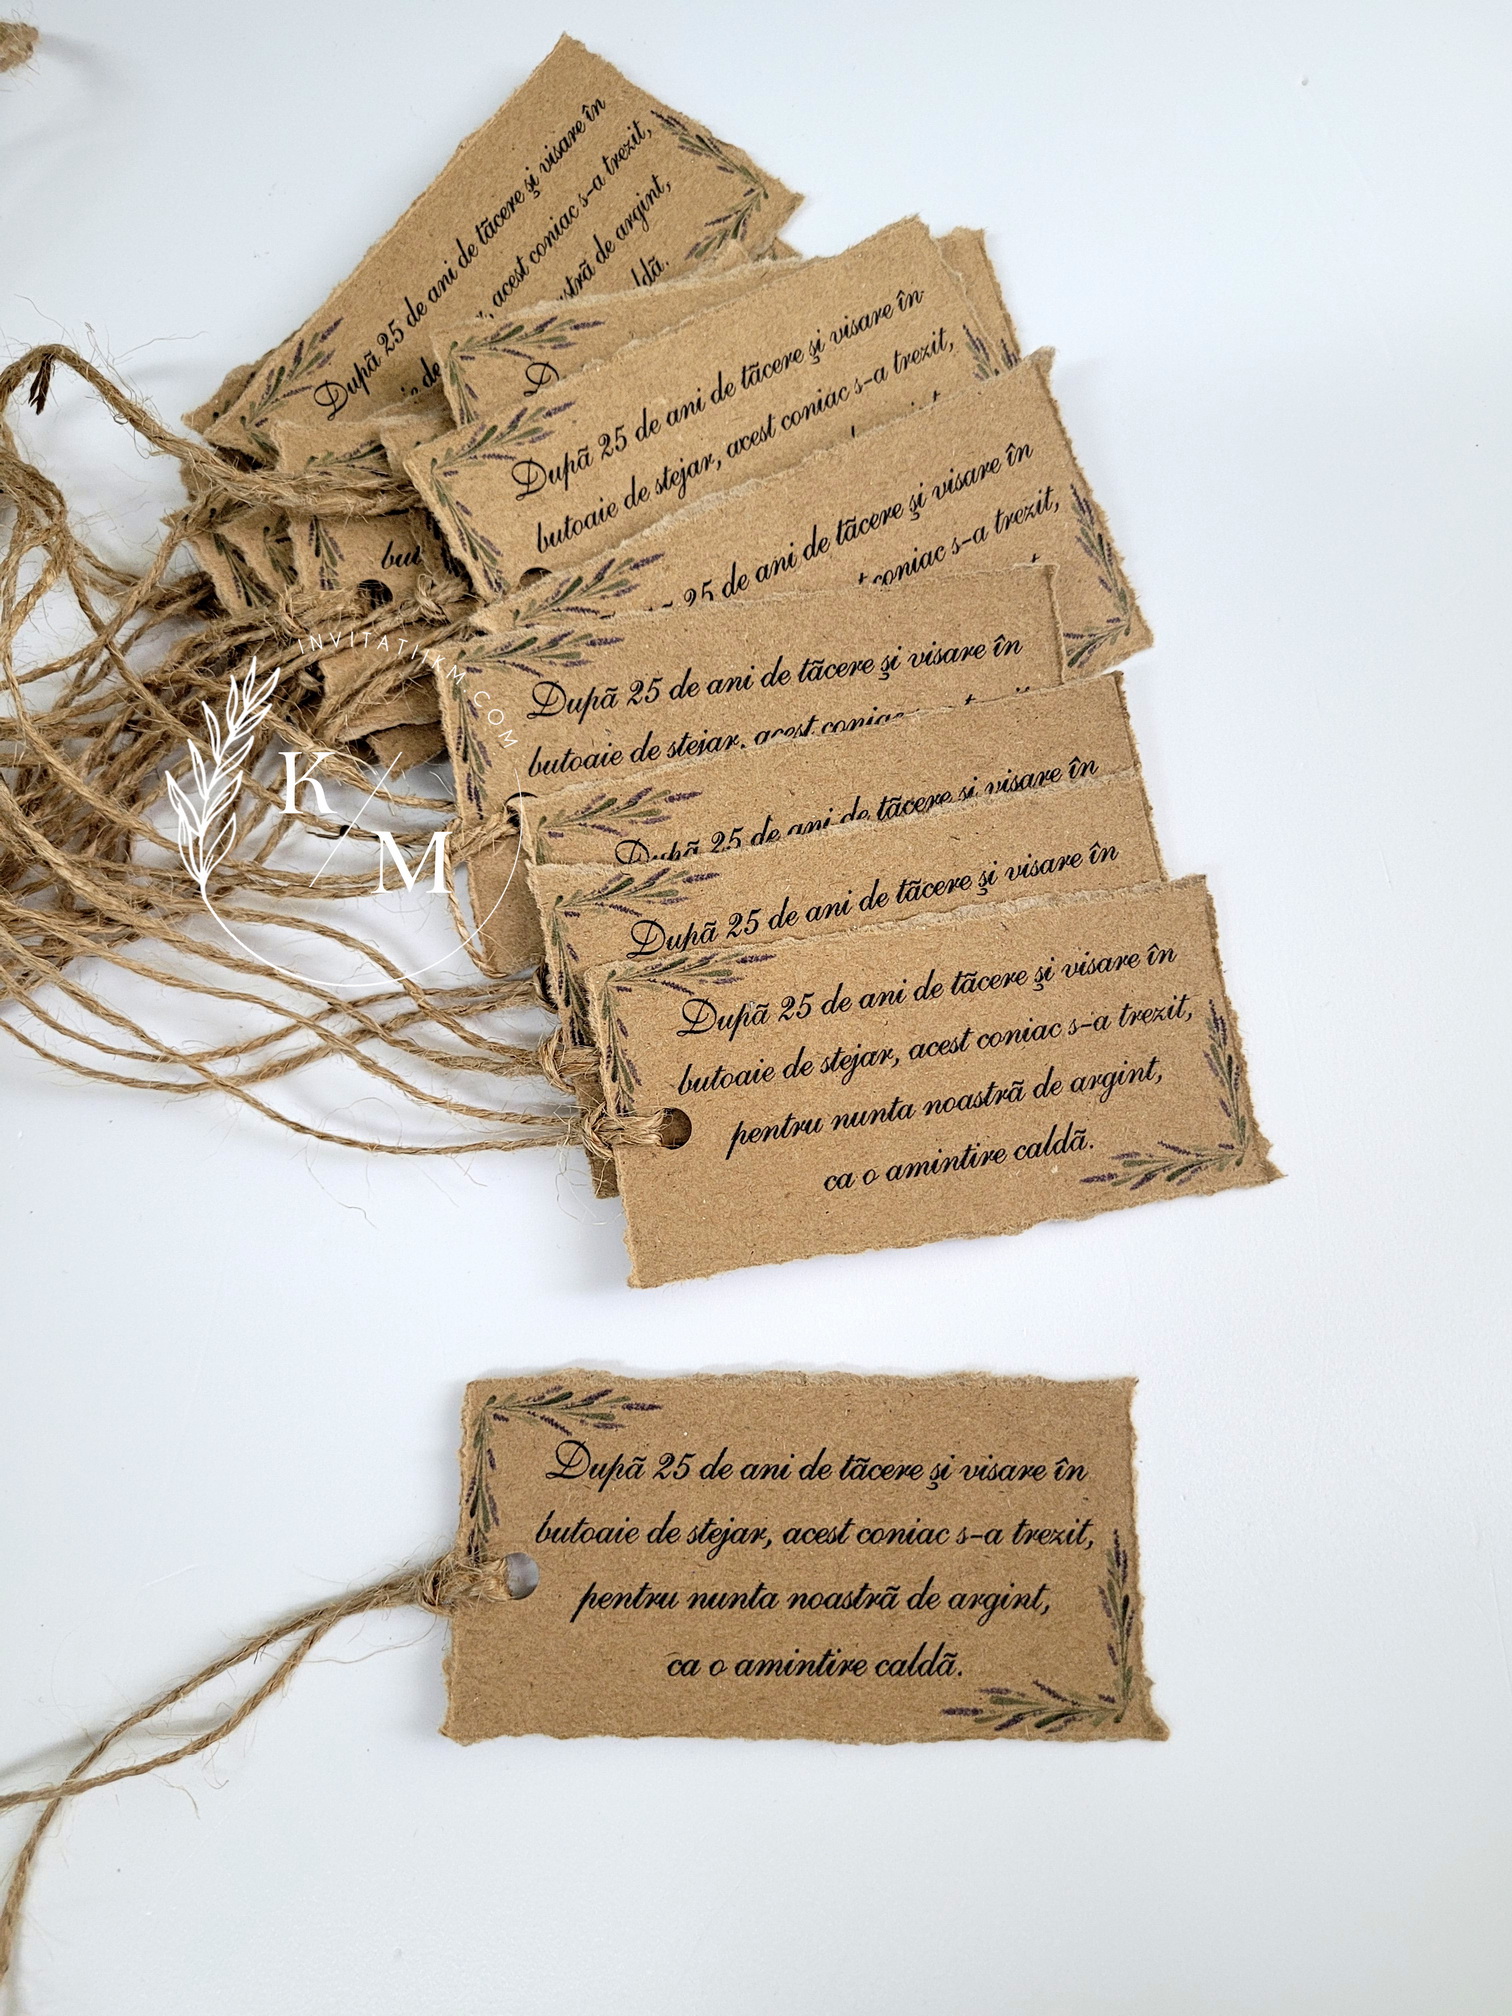 Dupã 25 de ani de tãcere şi visare în
acest coniac s-a trezit,
de argint,
Dupã 25 de ani de tãcere şi visare în
butoaie de stejar, acest coniac s-a trezit,
25 de ani de tãcere şi visare în
coniac s-a trezit,
INVITATIIKM.COM
K/M
Dupã 25 de ani de tãcere şi visare în
butoaie de stejar, acest coniac
Dupã 25 de ani de tãcere şi visare în
Dupã 25 de ani de tãcere şi visare în
Dupã 25 de ani de tãcere şi visare în
butoaie de stejar, acest coniac s-a trezit,
pentru nunta noastrã de argint,
ca o amintire caldã.
Dupã 25 de ani de tãcere şi visare în
butoaie de stejar, acest coniac s-a trezit,
pentru nunta noastrã de argint,
ca o amintire caldã.